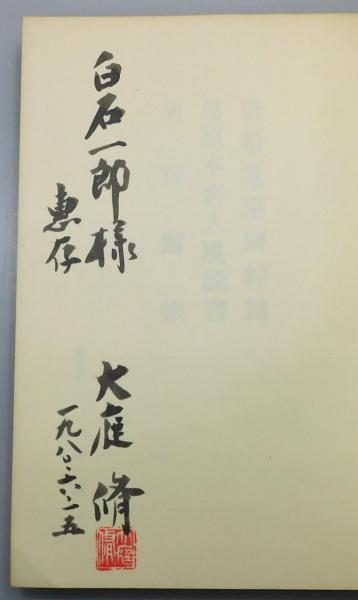 白石一郎様
惠存
大庭脩
一九八〇・六・一五